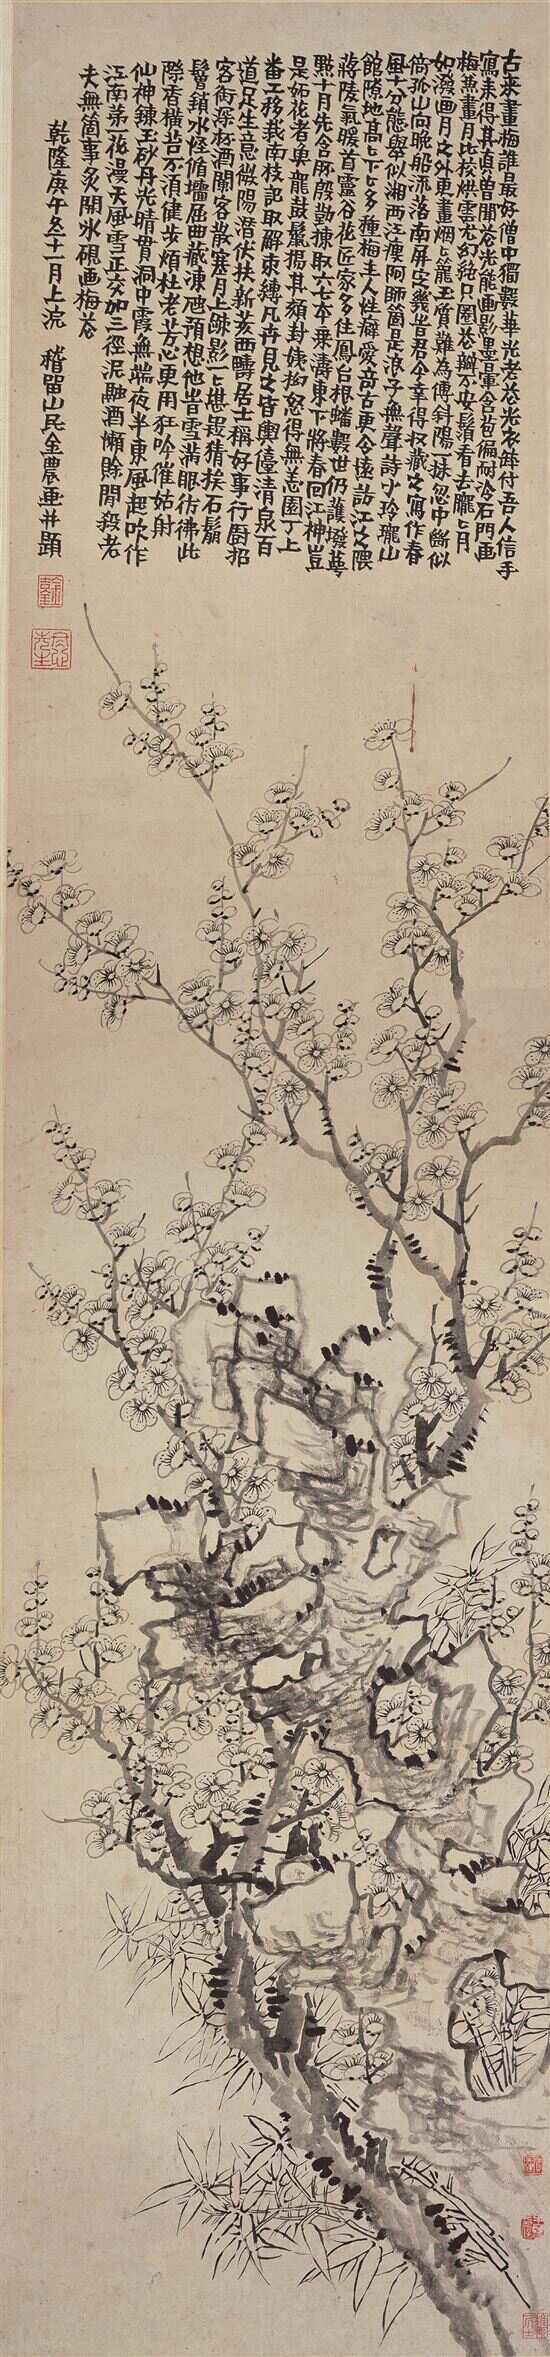 古來畫梅誰最好僧中獨數華光老花光衣鉢付吾人信手
寫來得其真曾聞花光能画影墨暈含苞偏耐冷石門画
梅兼畫月比校烘雲尤幻絕只圈花瓣不安鬚看去朧朧月
如潑画月之外更畫烟烟籠玉質難為傳斜陽一抹忽中斷似
倚孤山向晚船流落南屏定幾昔君今幸得收藏之寫作春
風十分態舉似湘西江瘦阿師箇是浪子無聲詩小玲瓏山
館隙地高高下下多種梅主人性癖愛高古更令遠訪江之隈
蔣陵氣暖首靈谷花匠家多住鳳台根蟠數世仍護撥萼
點十月先含胚殷勤揀取六七本乘溝東下將春回江神豈
是妬花者奧龍鼓鬣揚其頦封姨拗怒得無恙園丁上
番工移栽南枝記取解束縛凡卉見之皆輿儓清泉百
道足生意微陽潛伏扶新荄西疇居士稱好事行廚招
客銜深杯酒闌客散塞月上疎影一一堪疑猜挨石鬅
鬙鎖水怪循墻屈曲藏凍虺預想他時雪滿眼彷彿此
際香橫苔不須健步煩杜老苦心更用狂吟催姑射
仙神鍊玉砂丹光晴貫洞中霞無端夜半東風起吹作
江南第一花漫天風雪正交加三徑泥融酒懶賒閒殺老
夫無箇事炙開氷硯画梅花
乾隆庚午冬十一月上浣 稽留山民金農画并題